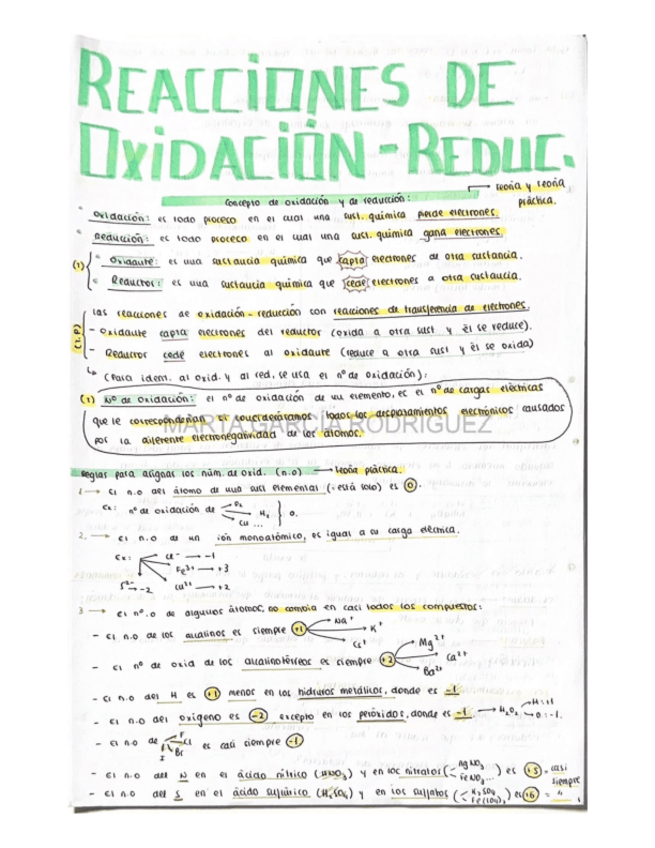 REACCIONES DE
OXIDACIÓN-REDUC.
Concepto de oxidación y de reducción: → teoría y teoría práctica.
* Oxidación: es todo proceso en el cual una sust. química pierde electrones.
* Reducción: es todo proceso en el cual una sust. química gana electrones
(T) { * Oxidante: es una sustancia química que capta electrones de otra sustancia.
* Reductor: es una sustancia química que cede electrones a otra sustancia.
(T.P) { Las reacciones de oxidación-reducción son reacciones de transferencia de electrones.
- Oxidante capta electrones del reductor (oxida a otra sust y él se reduce).
- Reductor cede electrones al oxidante (reduce a otra sust y él se oxida)
↳ (Para ident. al oxid. y al red, se usa el nº de oxidación):
(T) Nº de Oxidación: el nº de oxidación de un elemento, es el nº de cargas eléctricas
que le corresponderían si consideráramos todos los desplazamientos electrónicos causados
por la diferente electronegatividad de los átomos.
MARTA GARCÍA RODRÍGUEZ
Reglas para asignar los núm. de oxid. (n.o) → Teoría práctica.
1 → El n.o del átomo de una sust elemental (: está solo) es 0.
Ex: nº de oxidación de O₂ H₂ Cu ... } 0.
2. → El n.o de un ión monoatómico, es igual a su carga eléctrica.
Ex: Cl⁻ → -1
Fe³⁺ → +3
S²⁻ → -2 Cu²⁺ → +2
3 → El nº.o de algunos átomos, no cambia en casi todos los compuestos:
- El n.o de los alcalinos es siempre +1 Na⁺ K⁺ Cs⁺
- El nº de oxid de los alcalinotérreos es siempre +2 Mg²⁺ Ca²⁺ Ba²⁺
- El n.o del H es +1 menos en los hidruros metálicos, donde es -1
- El n.o del oxígeno es -2 excepto en los peróxidos, donde es -1. → H₂O₂ H=+1 O=-1.
- El n.o de F Cl Br I es casi siempre -1
- El n.o del N en el ácido nítrico (HNO₃) y en los nitratos (AgNO₃ FeNO₃...) es +5 = casi siempre
- El n.o del S en el ácido sulfúrico (H₂SO₄) y en los sulfatos (K₂SO₄ Fe(SO₄)₃) es +6 = " .